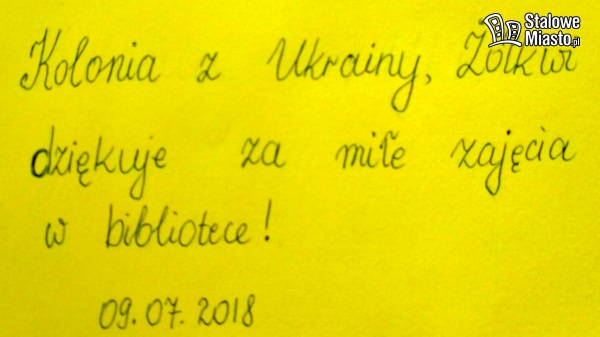 Stalowe
Miasto.pl
Kolonia z Ukrainy, Żółkwi
dziękuje za miłe zajęcia
w bibliotece!
09.07.2018